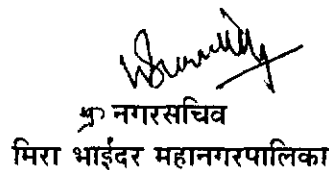 प्र. नगरसचिव
मिरा भाईंदर महानगरपालिका